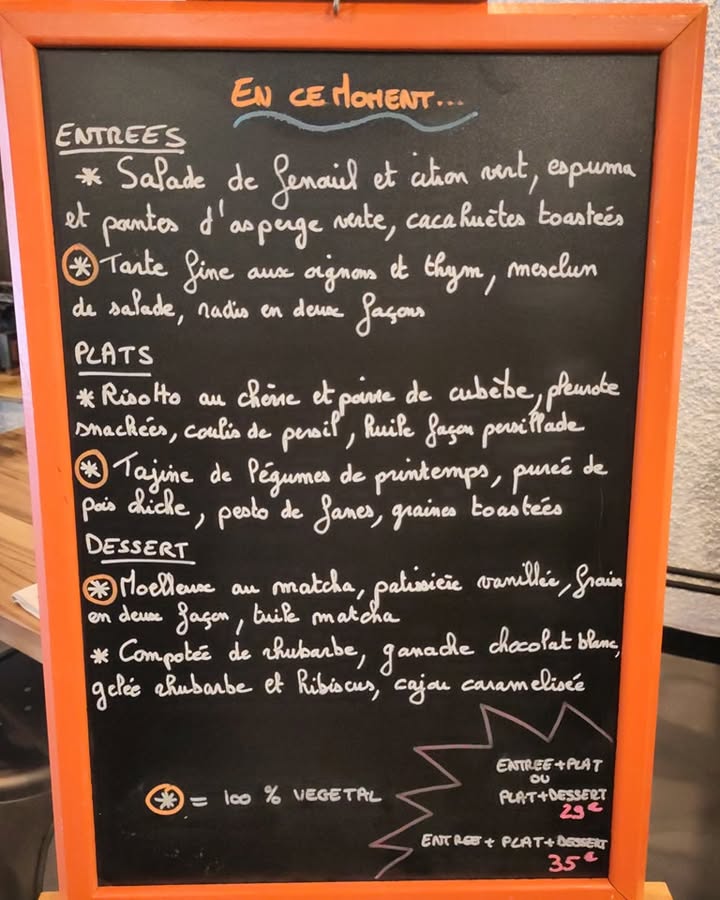 EN CE MOMENT...
ENTREES
* Salade de fenouil et citron vert, espuma
et pointes d'asperge verte, cacahuètes toastées
* Tarte fine aux oignons et thym, mesclun
de salade, radis en deux façons
PLATS
* Risotto au chèvre et poivre de cubèbe, pleurote
snackées, coulis de persil, huile façon persillade
* Tajine de légumes de printemps, pureé de
pois chiche, pesto de fanes, graines toastées
DESSERT
* Moelleux au matcha, patissière vanillée, fraise
en deux façon, tuile matcha
* Compotée de rhubarbe, ganache chocolat blanc,
gelée rhubarbe et hibiscus, cajou caramelisée
* = 100 % VEGETAL
ENTREE+PLAT
OU
PLAT+DESSERT
29€
ENTREE + PLAT+DESSERT
35€